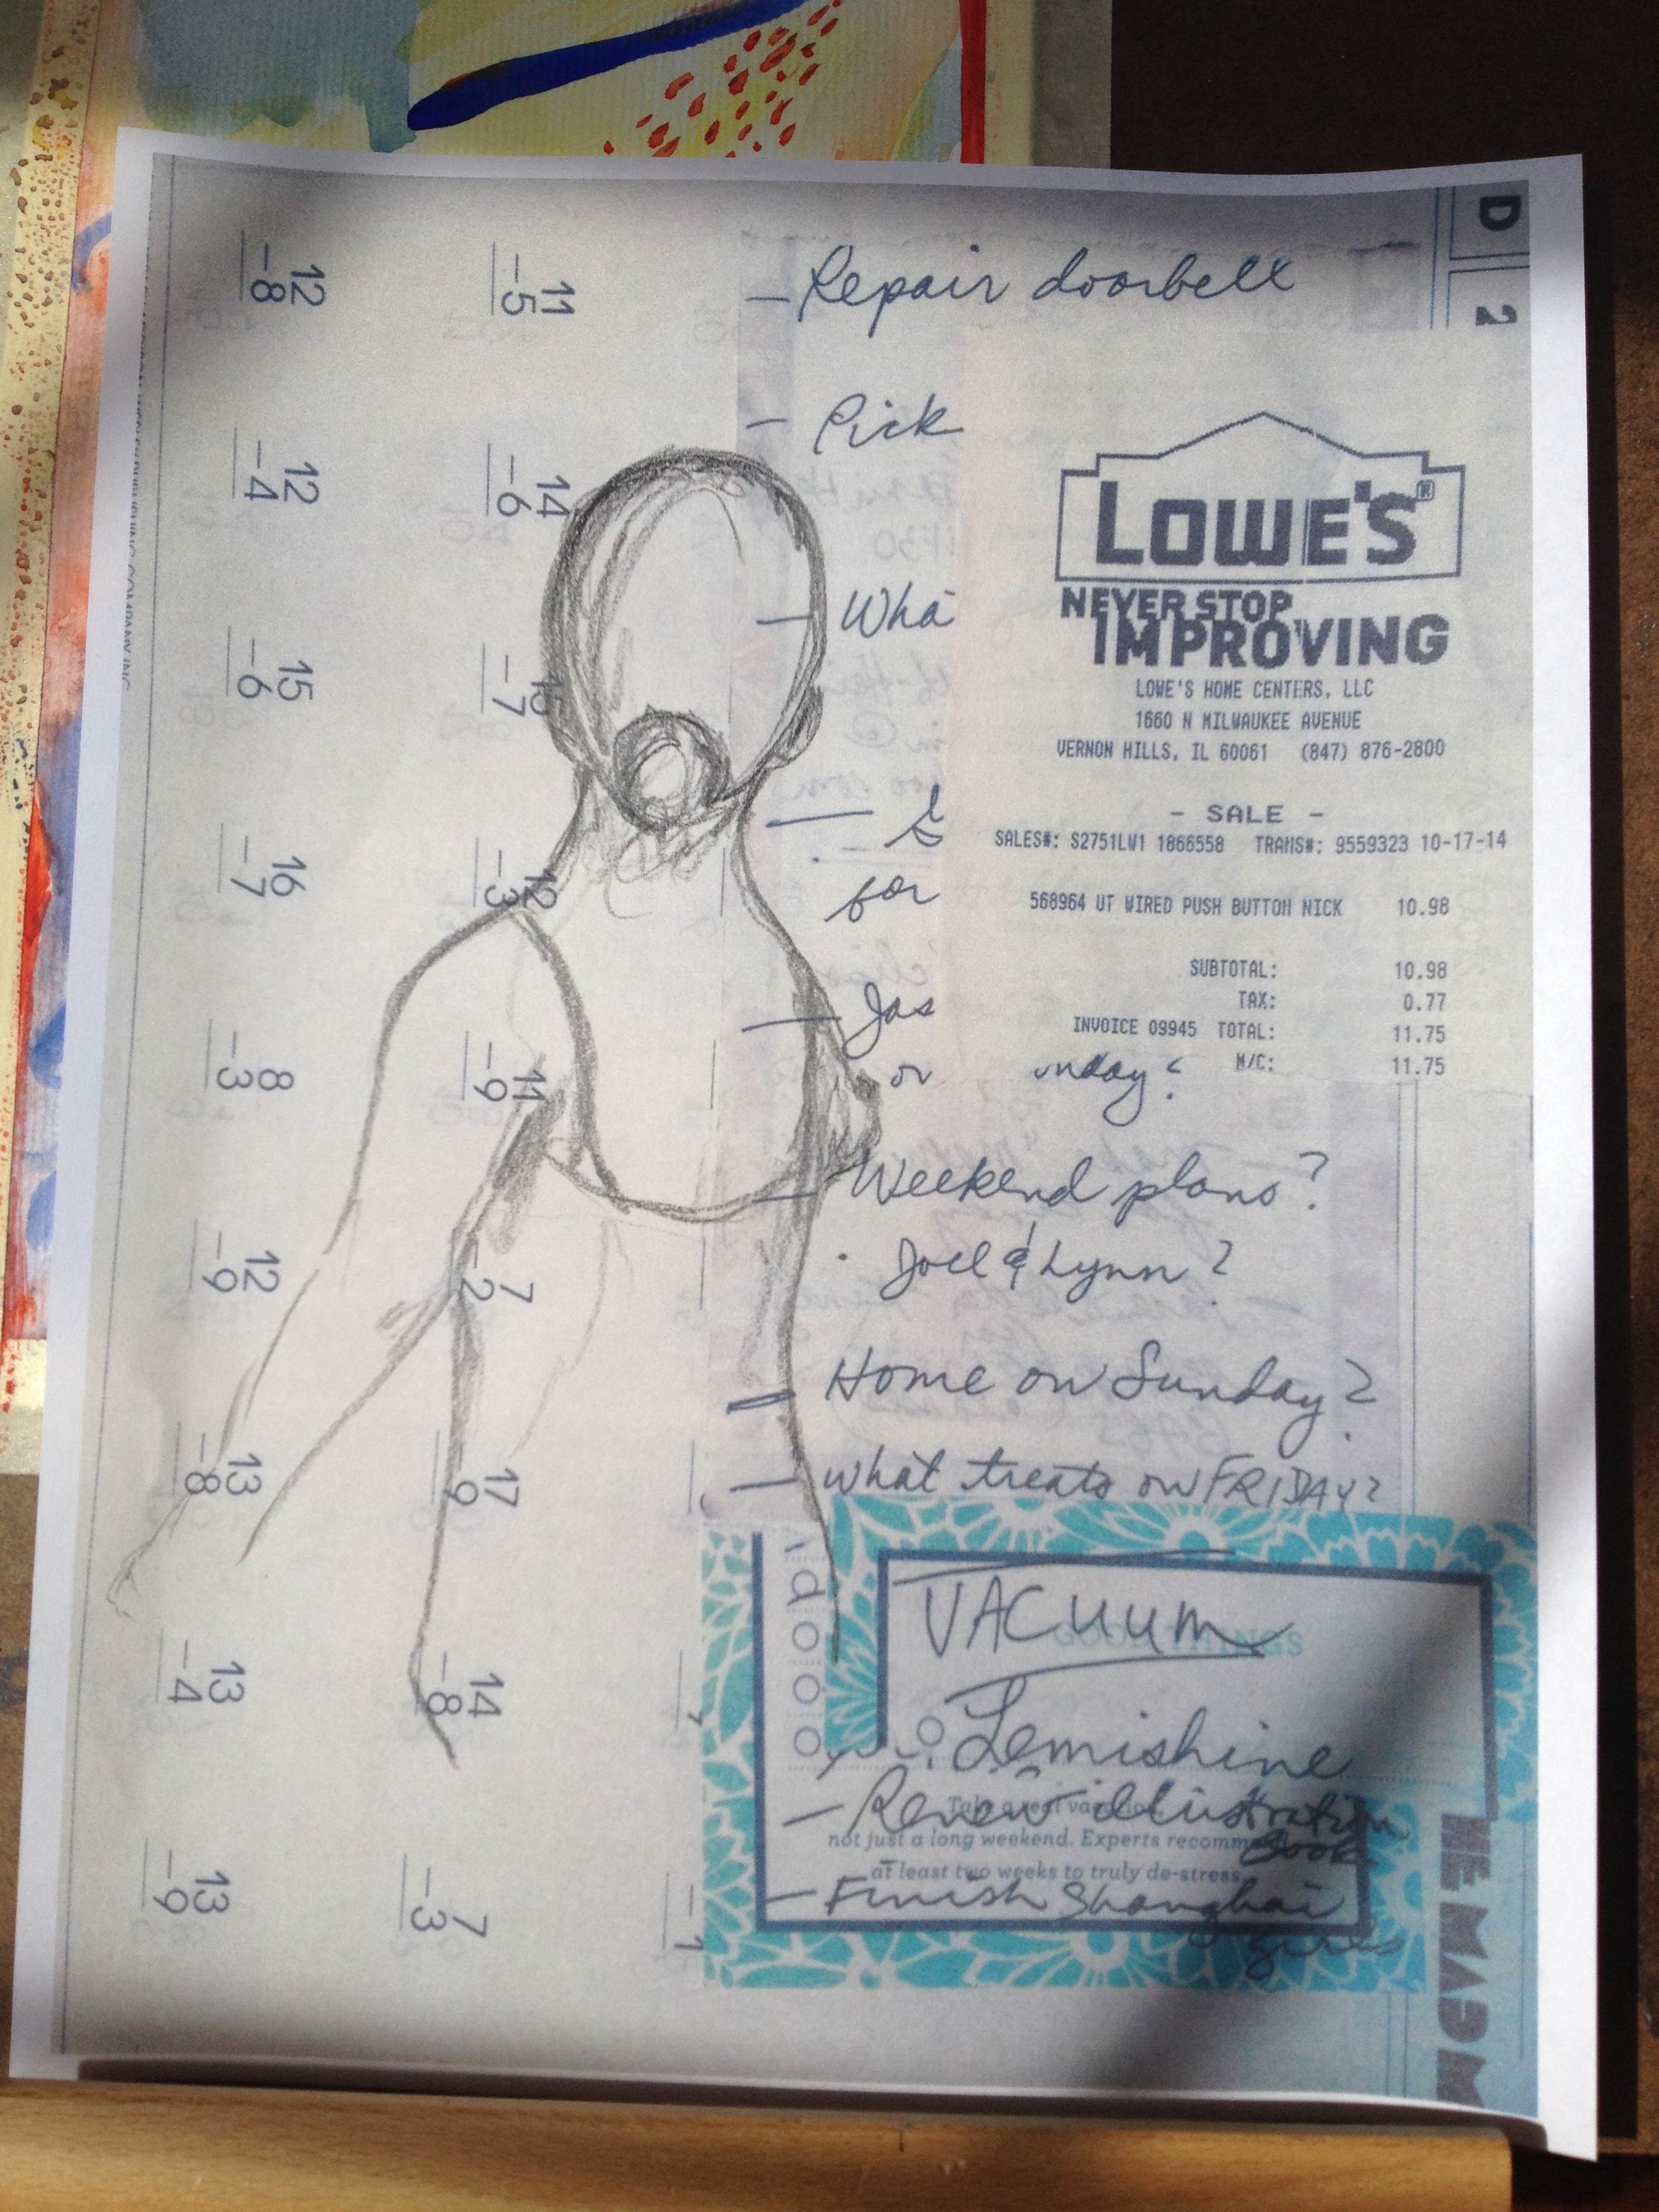 D
2
— Repair doorbell
— Pick
LOWE'S®
— Wha
NEVER STOP
IMPROVING
LOWE'S HOME CENTERS, LLC
1660 N MILWAUKEE AVENUE
VERNON HILLS, IL 60061 (847) 876-2800
- SALE -
SALES#: S2751LW1 1866558 TRANS#: 9559323 10-17-14
for
568964 UT WIRED PUSH BUTTON NICK 10.98
SUBTOTAL: 10.98
TAX: 0.77
— Jas
INVOICE 09945 TOTAL: 11.75
or unday?
M/C: 11.75
— Weekend plans?
· Joel & Lynn?
— Home on Sunday?
— what treats on FRIDAY?
VACUUM
GOOD THINGS
Lemishine
— Renew illustration
book
Take a real vacation,
not just a long weekend. Experts recommend
at least two weeks to truly de-stress.
— Finish Shanghai
girls
11
-5
14
-6
15
-7
12
-3
11
-9
7
-2
17
-9
14
-8
7
-3
12
-8
12
-4
15
-6
16
-7
8
-3
12
-9
13
-8
13
-4
13
-9